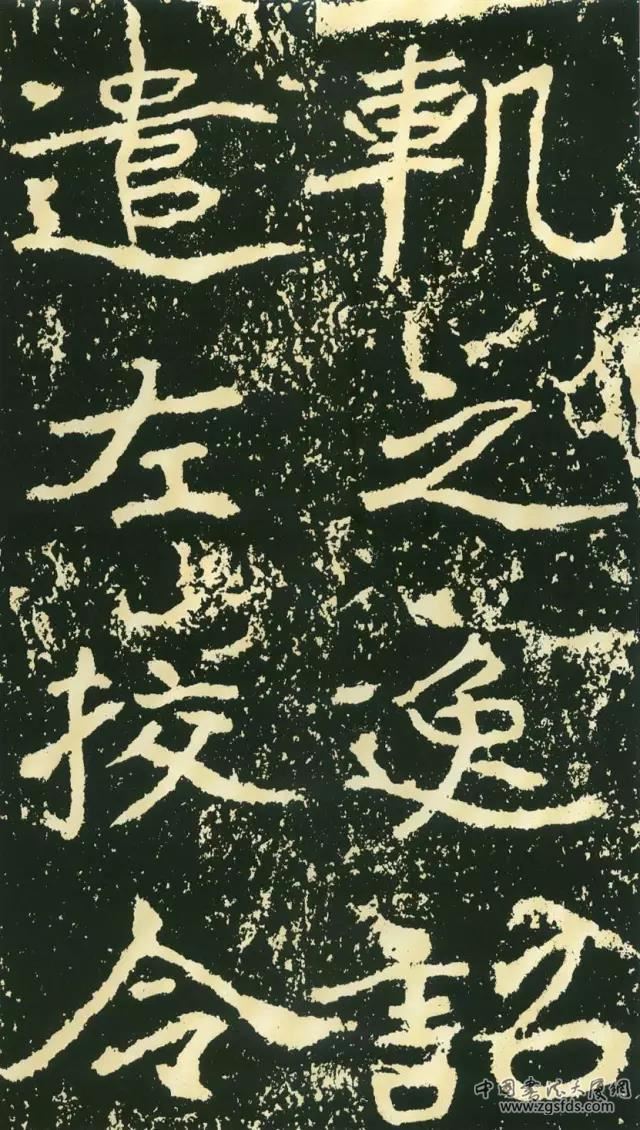 軌之逸詔
遣左挍令
中国书法大展网
www.zgsfds.com